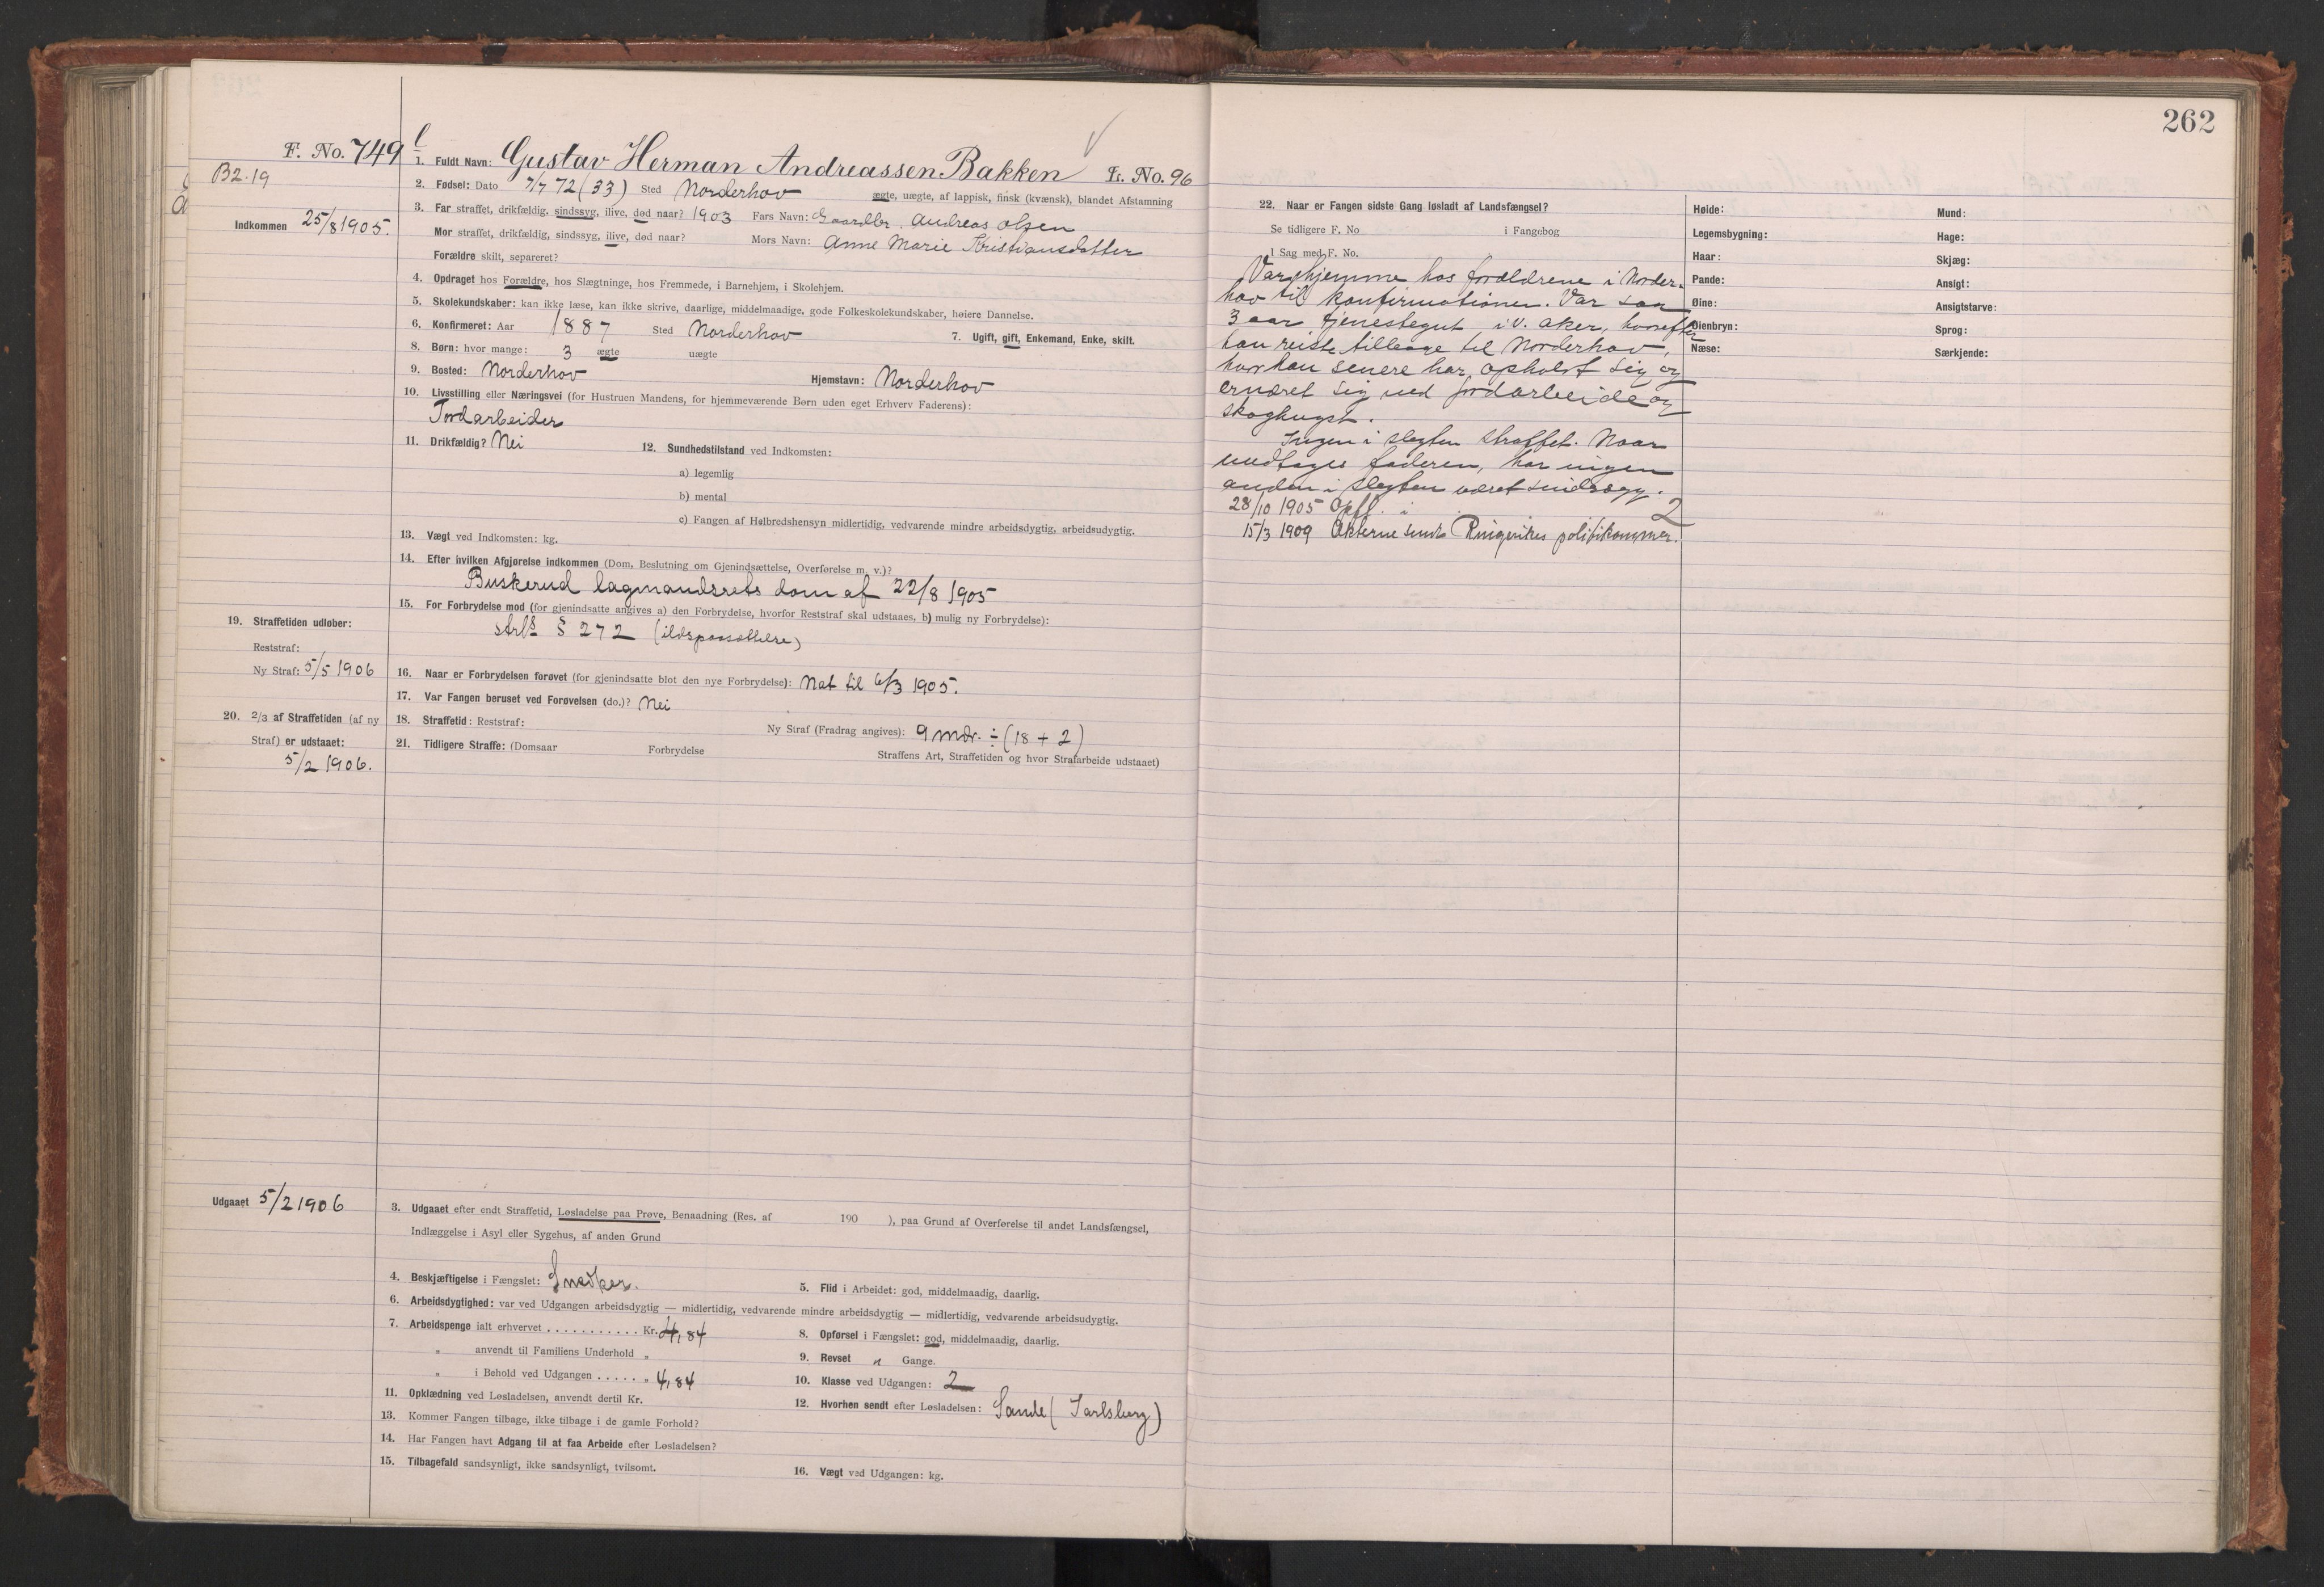 262
F. No. 749
B2.19
Indkommen 25/8 1905.
1. Fuldt Navn: Gustav Herman Andreassen Bakken Fr. No. 96
2. Fødsel: Dato 7/7 72 (33) Sted Norderhov ægte, uægte, af lappisk, finsk (kvænsk), blandet Afstamning
3. Far straffet, drikfældig, sindssyg, ilive, død naar? 1903 Fars Navn: Gaardbr. Andreas Olsen
Mor straffet, drikfældig, sindssyg, ilive, død naar? Mors Navn: Anne Marie Kristiansdatter
Forældre skilt, separeret?
4. Opdraget hos Forældre, hos Slægtninge, hos Fremmede, i Barnehjem, i Skolehjem.
5. Skolekundskaber: kan ikke læse, kan ikke skrive, daarlige, middelmaadige, gode Folkeskolekundskaber, høiere Dannelse.
6. Konfirmeret: Aar 1887 Sted Norderhov 7. Ugift, gift, Enkemand, Enke, skilt.
8. Børn: hvor mange: 3 ægte uægte
9. Bosted: Norderhov Hjemstavn: Norderhov
10. Livsstilling eller Næringsvei (for Hustruen Mandens, for hjemmeværende Børn uden eget Erhverv Faderens):
Jordarbeider
11. Drikfældig? Nei 12. Sundhedstilstand ved Indkomsten:
a) legemlig
b) mental
c) Fangen af Helbredshensyn midlertidig, vedvarende mindre arbeidsdygtig, arbeidsudygtig.
13. Vægt ved Indkomsten: kg.
14. Efter hvilken Afgjørelse indkommen (Dom, Beslutning om Gjenindsættelse, Overførelse m. v.)?
Buskerud lagmandsrets dom af 22/8 1905
15. For Forbrydelse mod (for gjenindsatte angives a) den Forbrydelse, hvorfor Reststraf skal udstaaes, b) mulig ny Forbrydelse):
strl's § 272 (ildspaasættelse)
19. Straffetiden udløber:
Reststraf:
Ny Straf: 5/5 1906
16. Naar er Forbrydelsen forøvet (for gjenindsatte blot den nye Forbrydelse): Nat til 6/3 1905.
17. Var Fangen beruset ved Forøvelsen (do.)? Nei
20. 2/3 af Straffetiden (af ny
Straf) er udstaaet:
5/2 1906.
18. Straffetid: Reststraf: Ny Straf (Fradrag angives): 9 mdr. ÷ (18 + 2)
21. Tidligere Straffe: (Domsaar Forbrydelse Straffens Art, Straffetiden og hvor Strafarbeide udstaaet)
Udgaaet 5/2 1906
3. Udgaaet efter endt Straffetid, Løsladelse paa Prøve, Benaadning (Res. af 190 ), paa Grund af Overførelse til andet Landsfængsel,
Indlæggelse i Asyl eller Sygehus, af anden Grund
4. Beskjæftigelse i Fængslet: Snedker. 5. Flid i Arbeidet: god, middelmaadig, daarlig.
6. Arbeidsdygtighed: var ved Udgangen arbeidsdygtig — midlertidig, vedvarende mindre arbeidsdygtig — midlertidig, vedvarende arbeidsudygtig.
7. Arbeidspenge ialt erhvervet . . . . . . . . . . . Kr. 4,84 8. Opførsel i Fængslet: god, middelmaadig, daarlig.
" anvendt til Familiens Underhold " 9. Revset " Gange.
" i Behold ved Udgangen . . . . . " 4,84 10. Klasse ved Udgangen: 2
11. Opklædning ved Løsladelsen, anvendt dertil Kr. 12. Hvorhen sendt efter Løsladelsen: Sande (Jarlsberg)
13. Kommer Fangen tilbage, ikke tilbage i de gamle Forhold?
14. Har Fangen havt Adgang til at faa Arbeide efter Løsladelsen?
15. Tilbagefald sandsynligt, ikke sandsynligt, tvilsomt. 16. Vægt ved Udgangen: kg.
22. Naar er Fangen sidste Gang løsladt af Landsfængsel?
Se tidligere F. No i Fangebog
I Sag med F. No.
Var hjemme hos forældrene i Norder-
hov til konfirmationen. Var saa
3 aar tjenestegut i V. Aker, hvorefter
han reiste tilbage til Norderhov,
hvor han senere har opholdt sig og
ernæret sig ved jordarbeide og
skoghugst.
Ingen i slegten straffet. Naar
undtages faderen, har ingen
anden i slegten været sindssyg.
28/10 1905 Opfl. i 2
15/3 1909 Akterne sendt Ringerikes politikammer.
Høide:
Legemsbygning:
Haar:
Pande:
Øine:
Øienbryn:
Næse:
Mund:
Hage:
Skjæg:
Ansigt:
Ansigtsfarve:
Sprog:
Særkjende: